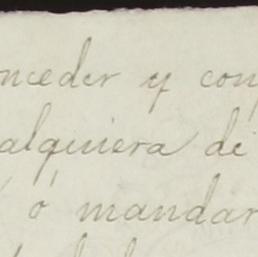 nceder y con
alquiera de
ó mandar